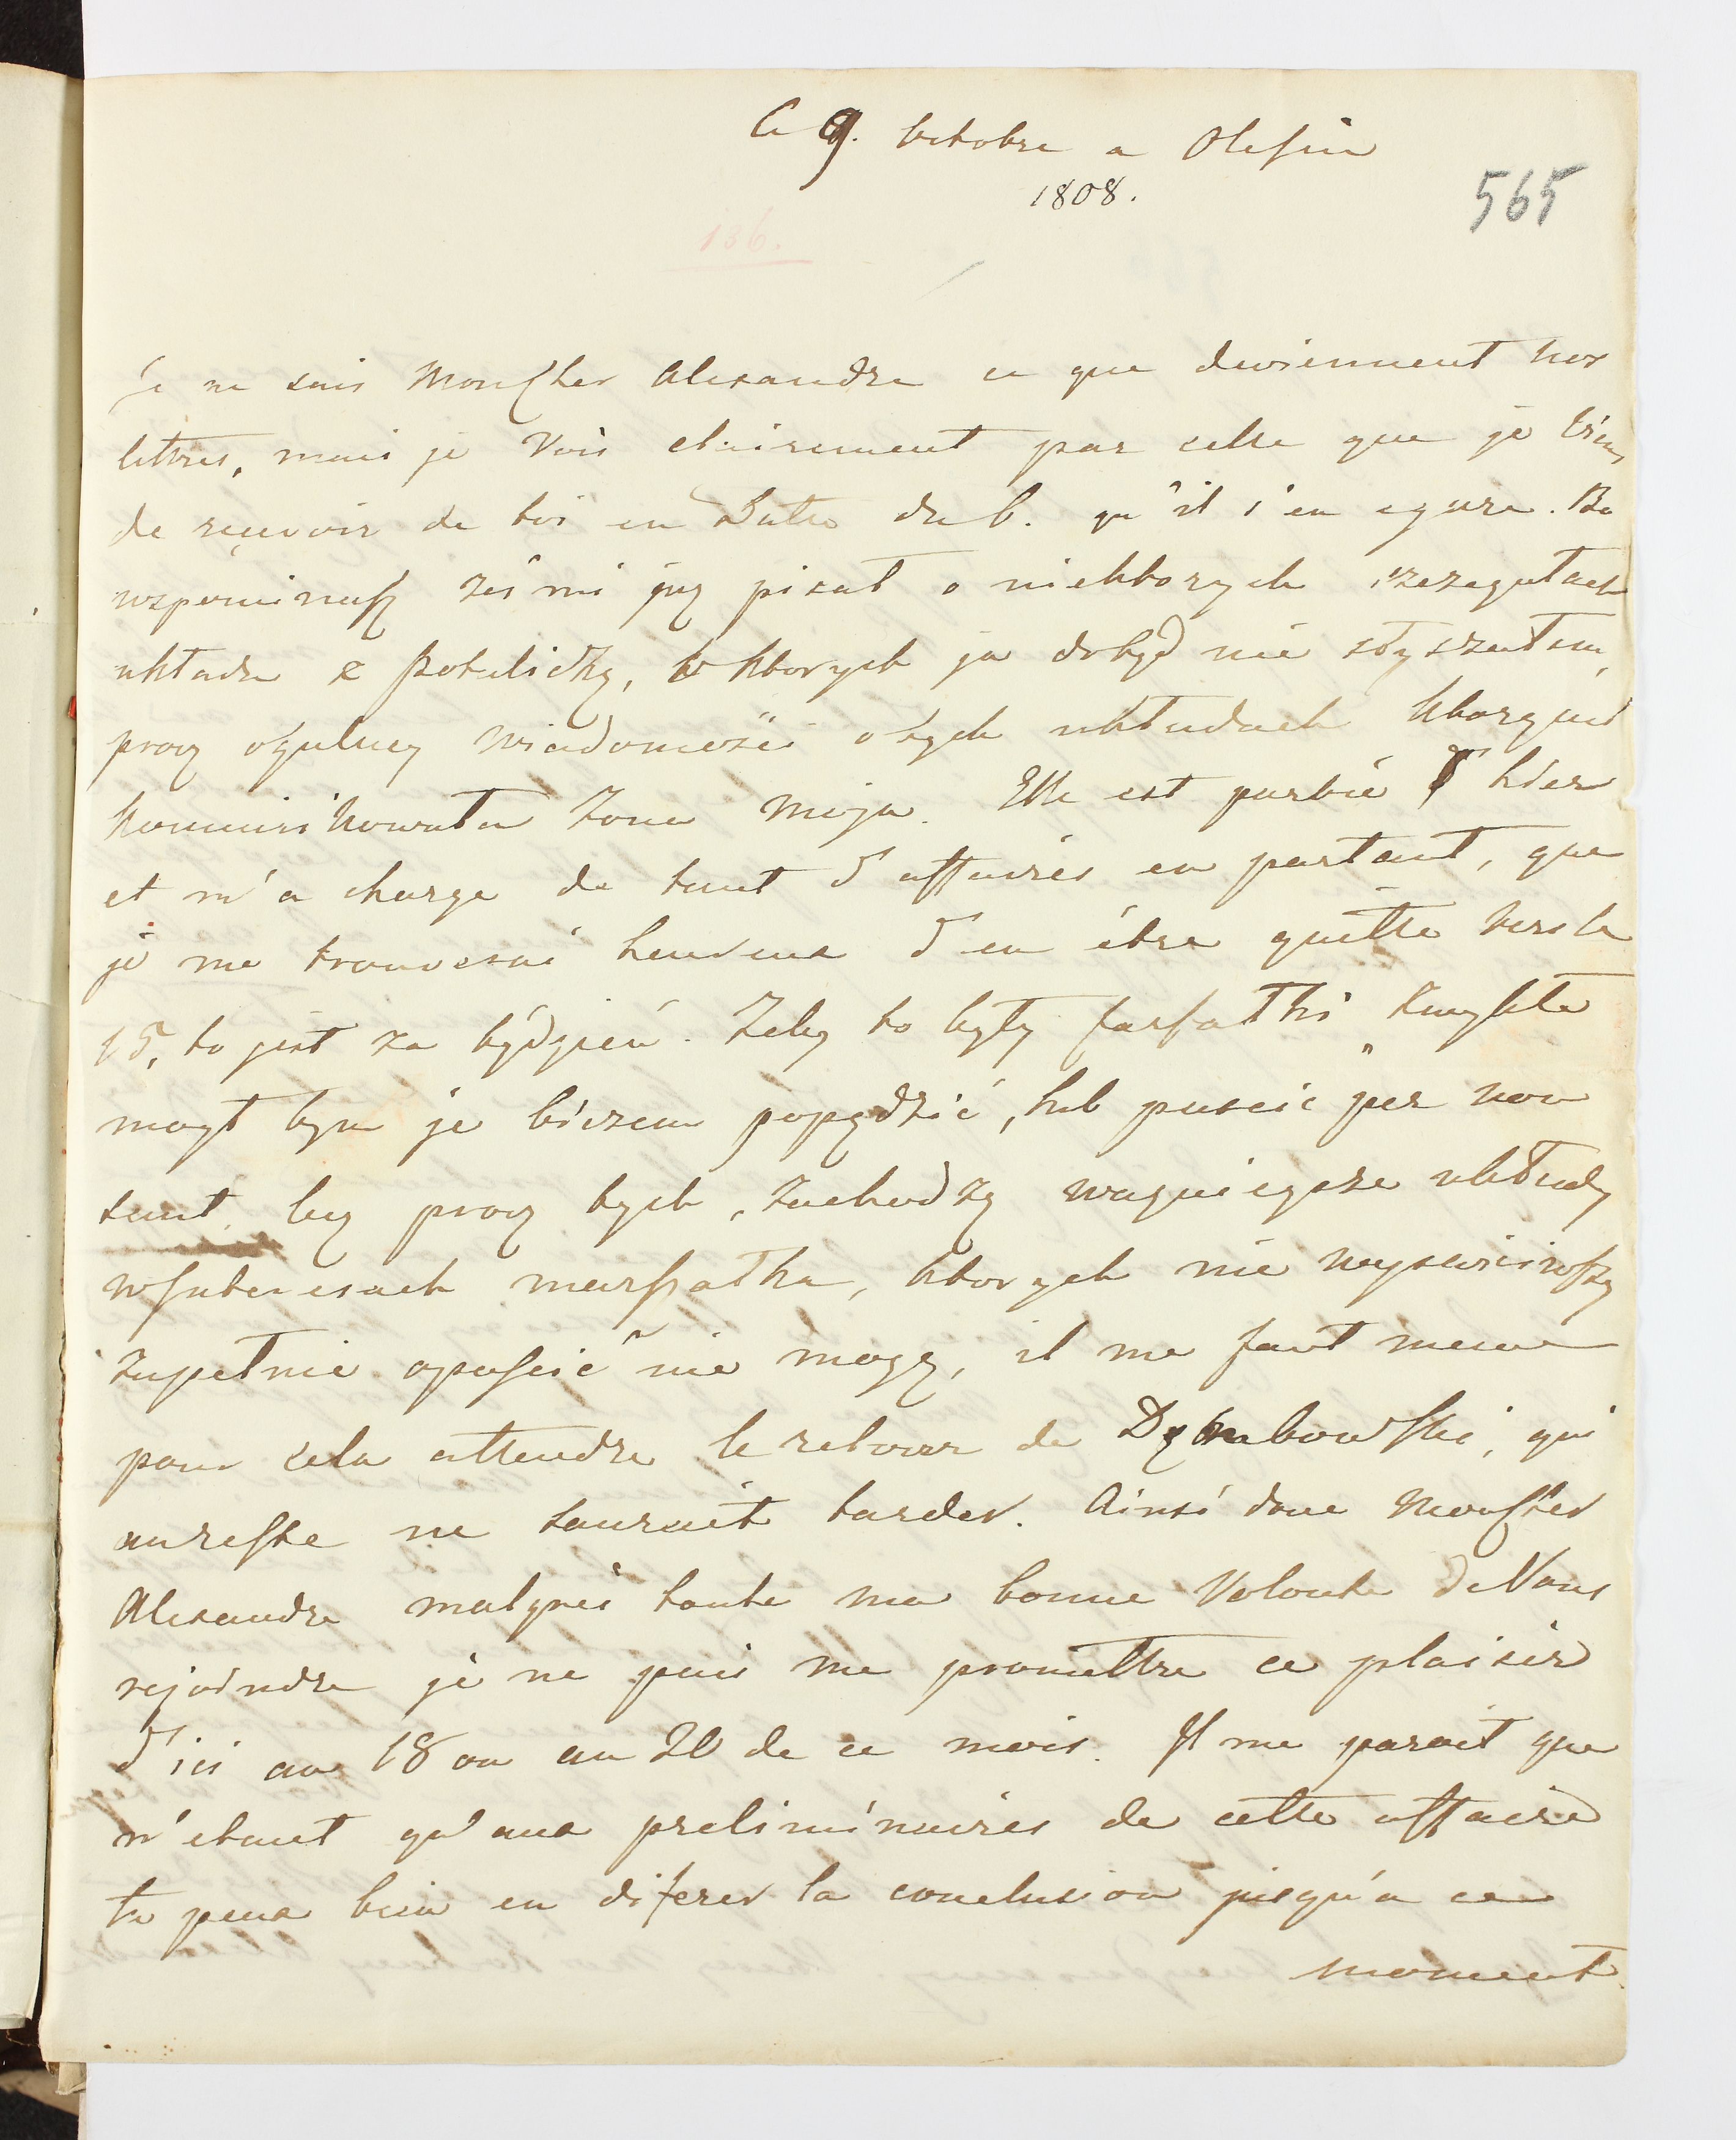 Ce 9. Octobre a Olesin
1808.
565
136.
Je ne sais Moncher Alexandre ce que deviennent nos
lettres, mais je Vois clairement par celle que je viens
de reçevoir de toi en Datte du 6. qu'il s'en egare. Bo
wspominasz żeś mi już pisał o niektorych szczegułach
układu z Potulicką, o ktorych ja dotąd nie słyszałem,
procz ogulney wiadomości o tych układach ktorą mi
kommunikowała Żona moja. Elle est partie hier
et m'a charge de tant d'affaires en partant, que
je me trouverai heureux d'en être quitte vers le
15, to jest za tydzień. Żeby to były farfałki zwykłe
mogł bym je biczem popędzić, lub puscić per non
sunt, lecz procz tych, zachodzą waznieysze układy
w Interesach marszałka, ktorych nie uysciwszy
zupełnie opuścić nie mogę, il me faut meme
pour cela attendre le retour de Dębowski, qui
aureste ne saurait tarder. Ainsi donc Moncher
Alexandre malgré toute ma bonne Volonte de Vous
rejoindre je ne puis me promettre ce plaisir
d'ici au 18 ou au 20 de ce mois. Il me parait que
n'etant qu'aux preliminaires de cette affaire
tu peux bien en diferer la conclusion jusqu'a ce
moment.